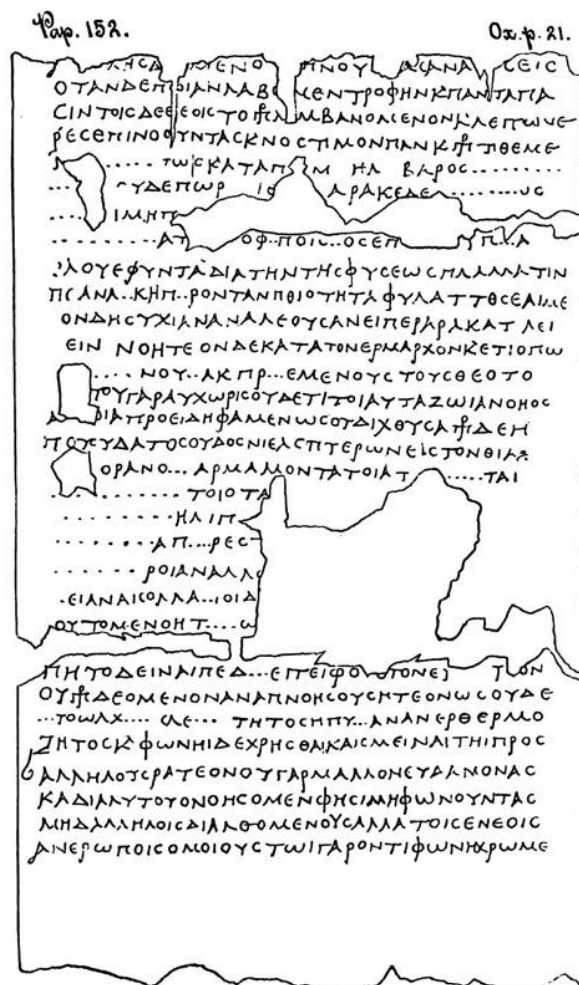 Pap. 152. Ox. p. 21.
ΟΤΑΝΔΕΠ ΙΑΝΛΑΒ ΜΕΝΤΡΟΦΗΝΚΠΑΝΤΑΠΑ
ϹΙΝΤΟΙϹΔΕΘΕΟΙϹΤΟ ΛΑΜΒΑΝΟΜΕΝΟΝΚΛΕΠΩΝΕ
ΡΕϹΕΠΙΝΟΟΥΝΤΑϹΚΝΟϹΤΙΜΟΝΠΑΝΚ ΤΙΘΕΜΕ
...... ΤΩϹΚΑΤΑΠ Μ ΗΛ ΒΑΡΟϹ..........
..... ΥΔΕΠΩΡ ΙϹ ΑΡΑΚΕΔΕ ...... ΥϹ
..... ΙΜΗΠ
......... ΑΤ ΟΦ.ΠΟΙϹ..ΟϹΕΠ ΥΠ..Α
.ΛΟΥΕΦΥΝΤΑΔΙΑΤΗΝΤΗϹΦΥϹΕΩϹΠΛΑΛΛΑΤΙΝ
ΠϹΑΝΑ..ΚΗΠ..ΡΟΝΤΑΝΠΘΙΟΤΗΤΑΦΥΛΑΤΤΘϹΕΑΙΜΕ
ΟΝΔΗϹΥΧΙΑΝΑΝΑΛΕΟΥϹΑΝΕΙΠΕΡΑΡΑΚΑΤ ΛΕΙ
ΕΙΝ ΝΟΗΤΕΟΝΔΕΚΑΤΑΤΟΝΕΡΜΑΡΧΟΝΚΕΤΙΟΠΩ
.... ΝΟΥ..ΑΚΠΡ...ΕΜΕΝΟΥϹΤΟΥϹΘΕΟΤΟ
ΤΟΥΓΑΡΑΥΧΩΡΙϹΟΥΔΕΤΙΤΟΙΑΥΤΑΖΩΙΑΝΟΗΟϹ
ΔΙΑΠΡΟΕΙΔΗΦΑΜΕΝΩϹΟΥΔΙΧΘΥϹΑ ΔΕΗ
ΠΟΤΥΔΑΤΟϹΟΥΔΟϹΝΙΕΑϹΠΤΕΡΩΝΕΙϹΤΟΝΘΙΑ
ΟΡΑΝΟ... ΑΡΜΑΜΟΝΤΑΤΟΙΑΤ ......ΤΑΙ
......... ΤΟΙΟΤΑ
......... ΗΛΙΠ
......... ΑΠ...ΡΕϹ
........ ΡΟΙΑΝΑΛΛΟ
.ΕΙΑΝΑΙϹΟΛΛΑ...ΙΟΙΔ
ΟΥΤΟΜΕΝΟΗΤ....Ω
ΠΗΤΟΔΕΙΝΑΙΠΕΔ...ΕΠΕΙΦΟ ΤΟΝΕ ΤΩΝ
ΟΥ ΔΕΟΜΕΝΟΝΑΝΑΠΝΟΗϹΟΥϹΗΤΕΟΝΩϹΟΥΔΕ
...ΤΟΩΛΧ.... ϹΛΕ... ΤΗΤΟϹΗΠΥ...ΑΝΑΝΕΡΘΕΡΜΟ
ΖΗΤΟϹΚΦΩΝΗΙΔΕΧΡΗϹΘΑΙΚΑΙϹΜΕΙΝΛΙΤΗΙΠΡΟϹ
ΑΛΛΗΛΟΥϹΡΑΤΕΟΝΟΥΓΑΡΜΑΛΛΟΝΕΥΔΑΜΟΝΑϹ
ΚΑΔΙΑΛΥΤΟΥΟΝΟΗϹΟΜΕΝΦΗϹΙΜΗΦΩΝΟΥΝΤΑϹ
ΜΗΔΑΛΛΗΛΟΙϹΔΙΑΛΘΟΜΕΝΟΥϹΑΛΛΑΤΟΙϹΕΝΕΟΙϹ
ΑΝΕΡΩΠΟΙϹΟΜΟΙΟΥϹΤΩΙΓΑΡΟΝΤΙΦΩΝΗΧΡΩΜΕ